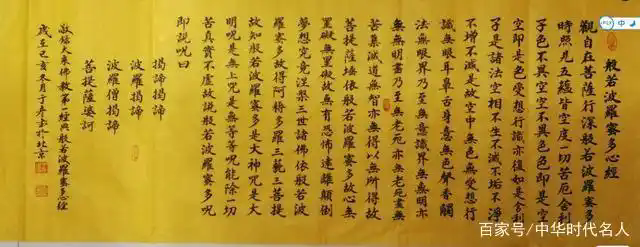 般若波羅蜜多心經
觀自在菩薩行深般若波羅蜜多
時照見五蘊皆空度一切苦厄舍利
子色不異空空不異色色即是空
空即是色受想行識亦復如是舍利
子是諸法空相不生不滅不垢不淨
不增不減是故空中無色無受想行
識無眼耳鼻舌身意無色聲香觸
法無眼界乃至無意識界無無明亦
無無明盡乃至無老死亦無老死盡無
苦集滅道無智亦無得以無所得故
菩提薩埵依般若波羅蜜多故心無
罣礙無罣礙故無有恐怖遠離顛倒
夢想究竟涅槃三世諸佛依般若波
羅蜜多故得阿耨多羅三藐三菩提
故知般若波羅蜜多是大神咒是大
明咒是無上咒是無等等咒能除一切
苦真實不虛故說般若波羅蜜多咒
即說咒曰
揭諦揭諦
波羅揭諦
波羅僧揭諦
菩提薩婆訶
敬錄大乘佛教第一經典般若波羅蜜多心經
歲在己亥冬月于書於北京
百家号/中华时代名人